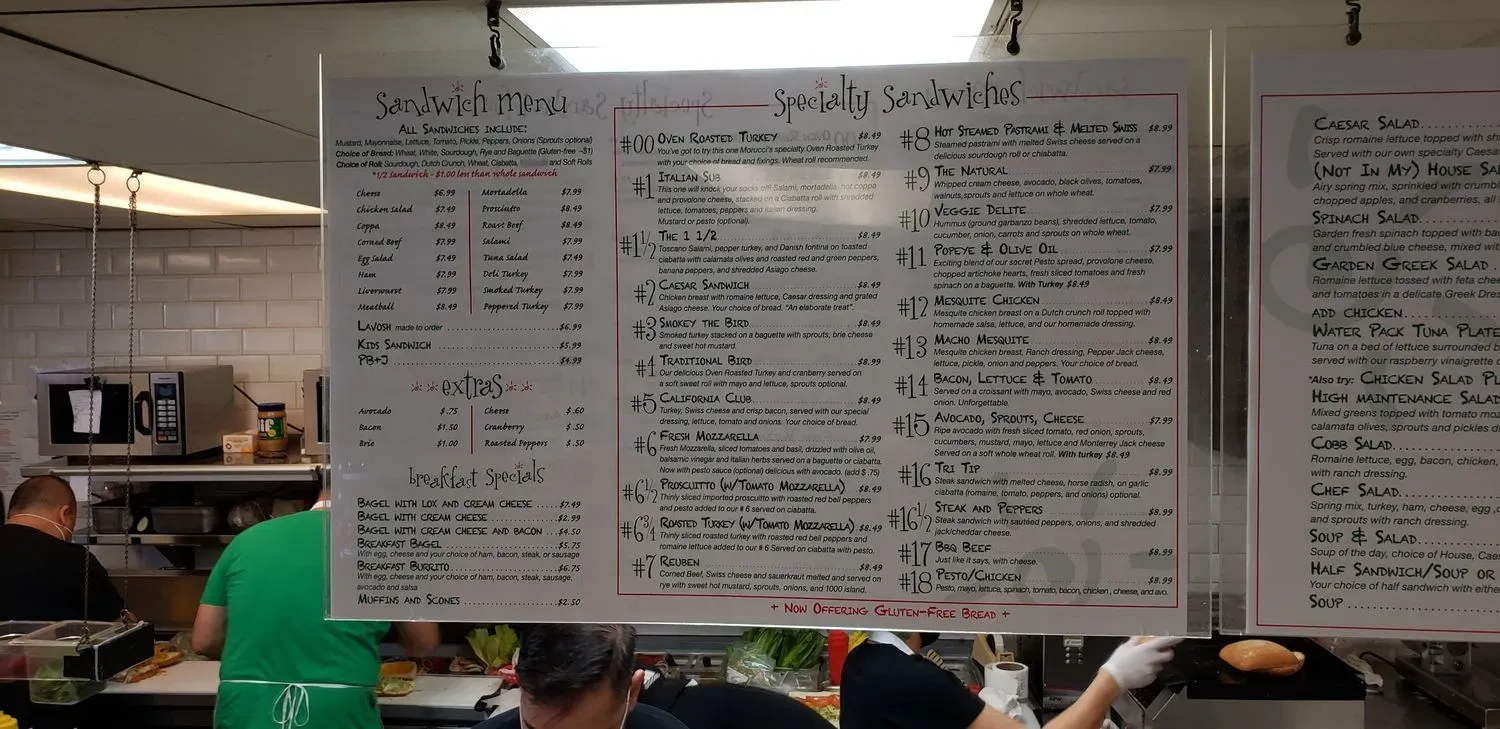 Sandwich Menu
All Sandwiches Include:
Mustard, Mayonnaise, Lettuce, Tomato, Pickle, Peppers, Onions (Sprouts optional)
Choice of Bread: Wheat, White, Sourdough, Rye and Baguette (Gluten-free ~$1)
Choice of Roll: Sourdough, Dutch Crunch, Wheat, Ciabatta, and Soft Rolls
*1/2 Sandwich - $1.00 less than whole sandwich
Cheese $6.99 Mortadella $7.99
Chicken Salad $7.49 Prosciutto $8.49
Coppa $8.49 Roast Beef $8.49
Corned Beef $7.99 Salami $7.99
Egg Salad $7.49 Tuna Salad $7.49
Ham $7.99 Deli Turkey $7.99
Liverwurst $7.99 Smoked Turkey $7.99
Meatball $8.49 Peppered Turkey $7.99
Lavosh made to order $6.99
Kids Sandwich $5.99
PB+J $4.99
extras
Avocado $.75 Cheese $.60
Bacon $1.50 Cranberry $.50
Brie $1.00 Roasted Peppers $.50
breakfast Specials
Bagel with Lox and Cream Cheese $7.49
Bagel with Cream Cheese $2.99
Bagel with Cream Cheese and Bacon $4.50
Breakfast Bagel $5.75
With egg, cheese and your choice of ham, bacon, steak, or sausage
Breakfast Burrito $6.75
With egg, cheese and your choice of ham, bacon, steak, sausage,
avocado and salsa
Muffins and Scones $2.50
Specialty Sandwiches
#00 Oven Roasted Turkey $8.49
You've got to try this one Morucci's specialty Oven Roasted Turkey
with your choice of bread and fixings. Wheat roll recommended.
#1 Italian Sub $8.49
This one will knock your socks off! Salami, mortadella, hot coppa
and provolone cheese, stacked on a Ciabatta roll with shredded
lettuce, tomatoes, peppers and Italian dressing.
Mustard or pesto (optional).
#1½ The 1 1/2 $8.49
Toscano Salami, pepper turkey, and Danish fontina on toasted
ciabatta with calamata olives and roasted red and green peppers,
banana peppers, and shredded Asiago cheese.
#2 Caesar Sandwich $8.49
Chicken breast with romaine lettuce, Caesar dressing and grated
Asiago cheese. Your choice of bread. "An elaborate treat".
#3 Smokey the Bird $8.49
Smoked turkey stacked on a baguette with sprouts, brie cheese
and sweet hot mustard.
#4 Traditional Bird $8.99
Our delicious Oven Roasted Turkey and cranberry served on
a soft sweet roll with mayo and lettuce, sprouts optional.
#5 California Club $8.49
Turkey, Swiss cheese and crisp bacon, served with our special
dressing, lettuce, tomato and onions. Your choice of bread.
#6 Fresh Mozzarella $7.99
Fresh Mozzarella, sliced tomatoes and basil, drizzled with olive oil,
balsamic vinegar and Italian herbs served on a baguette or ciabatta.
Now with pesto sauce (optional) delicious with avocado. (add $.75)
#6½ Proscuitto (w/Tomato Mozzarella) $8.49
Thinly sliced imported proscuitto with roasted red bell peppers
and pesto added to our # 6 served on ciabatta.
#6¾ Roasted Turkey (w/Tomato Mozzarella) $8.49
Thinly sliced roasted turkey with roasted red bell peppers and
romaine lettuce added to our # 6 Served on ciabatta with pesto.
#7 Reuben $8.49
Corned Beef, Swiss cheese and sauerkraut melted and served on
rye with sweet hot mustard, sprouts, onions, and 1000 island.
#8 Hot Steamed Pastrami & Melted Swiss $8.99
Steamed pastrami with melted Swiss cheese served on a
delicious sourdough roll or chiabatta.
#9 The Natural $7.99
Whipped cream cheese, avocado, black olives, tomatoes,
walnuts,sprouts and lettuce on whole wheat.
#10 Veggie Delite $7.99
Hummus (ground garbanzo beans), shredded lettuce, tomato,
cucumber, onion, carrots and sprouts on whole wheat.
#11 Popeye & Olive Oil $7.99
Exciting blend of our secret Pesto spread, provolone cheese,
chopped artichoke hearts, fresh sliced tomatoes and fresh
spinach on a baguette. With Turkey $8.49
#12 Mesquite Chicken $8.49
Mesquite chicken breast on a Dutch crunch roll topped with
homemade salsa, lettuce, and our homemade dressing.
#13 Macho Mesquite $8.49
Mesquite chicken breast, Ranch dressing, Pepper Jack cheese,
lettuce, pickle, onion and peppers. Your choice of bread.
#14 Bacon, Lettuce & Tomato $8.49
Served on a croissant with mayo, avocado, Swiss cheese and red
onion. Unforgettable.
#15 Avocado, Sprouts, Cheese $7.99
Ripe avocado with fresh sliced tomato, red onion, sprouts,
cucumbers, mustard, mayo, lettuce and Monterrey Jack cheese
Served on a soft whole wheat roll. With turkey $8.49
#16 Tri Tip $8.99
Steak sandwich with melted cheese, horse radish, on garlic
ciabatta (romaine, tomato, peppers, and onions) optional.
#16½ Steak and Peppers $8.99
Steak sandwich with sautéed peppers, onions, and shredded
jack/cheddar cheese.
#17 BBQ Beef $8.99
Just like it says, with cheese.
#18 Pesto/Chicken $8.99
Pesto, mayo, lettuce, spinach, tomato, bacon, chicken, cheese, and avo.
+ Now Offering Gluten-Free Bread +
Caesar Salad
Crisp romaine lettuce topped with
Served with our own specialty
(Not In My) House
Airy spring mix, sprinkled with
chopped apples, and cranberries, all
Spinach Salad
Garden fresh spinach topped with
and crumbled blue cheese, mixed
Garden Greek Salad
Romaine lettuce tossed with feta
and tomatoes in a delicate Greek
add chicken
Water Pack Tuna Plate
Tuna on a bed of lettuce surrounded
served with our raspberry vinaigrette
*Also try: Chicken Salad
High maintenance Salad
Mixed greens topped with tomato
calamata olives, sprouts and pickles
Cobb Salad
Romaine lettuce, egg, bacon, chicken,
with ranch dressing.
Chef Salad
Spring mix, turkey, ham, cheese, egg,
and sprouts with ranch dressing.
Soup & Salad
Soup of the day, choice of House,
Half Sandwich/Soup or
Your choice of half sandwich with
Soup